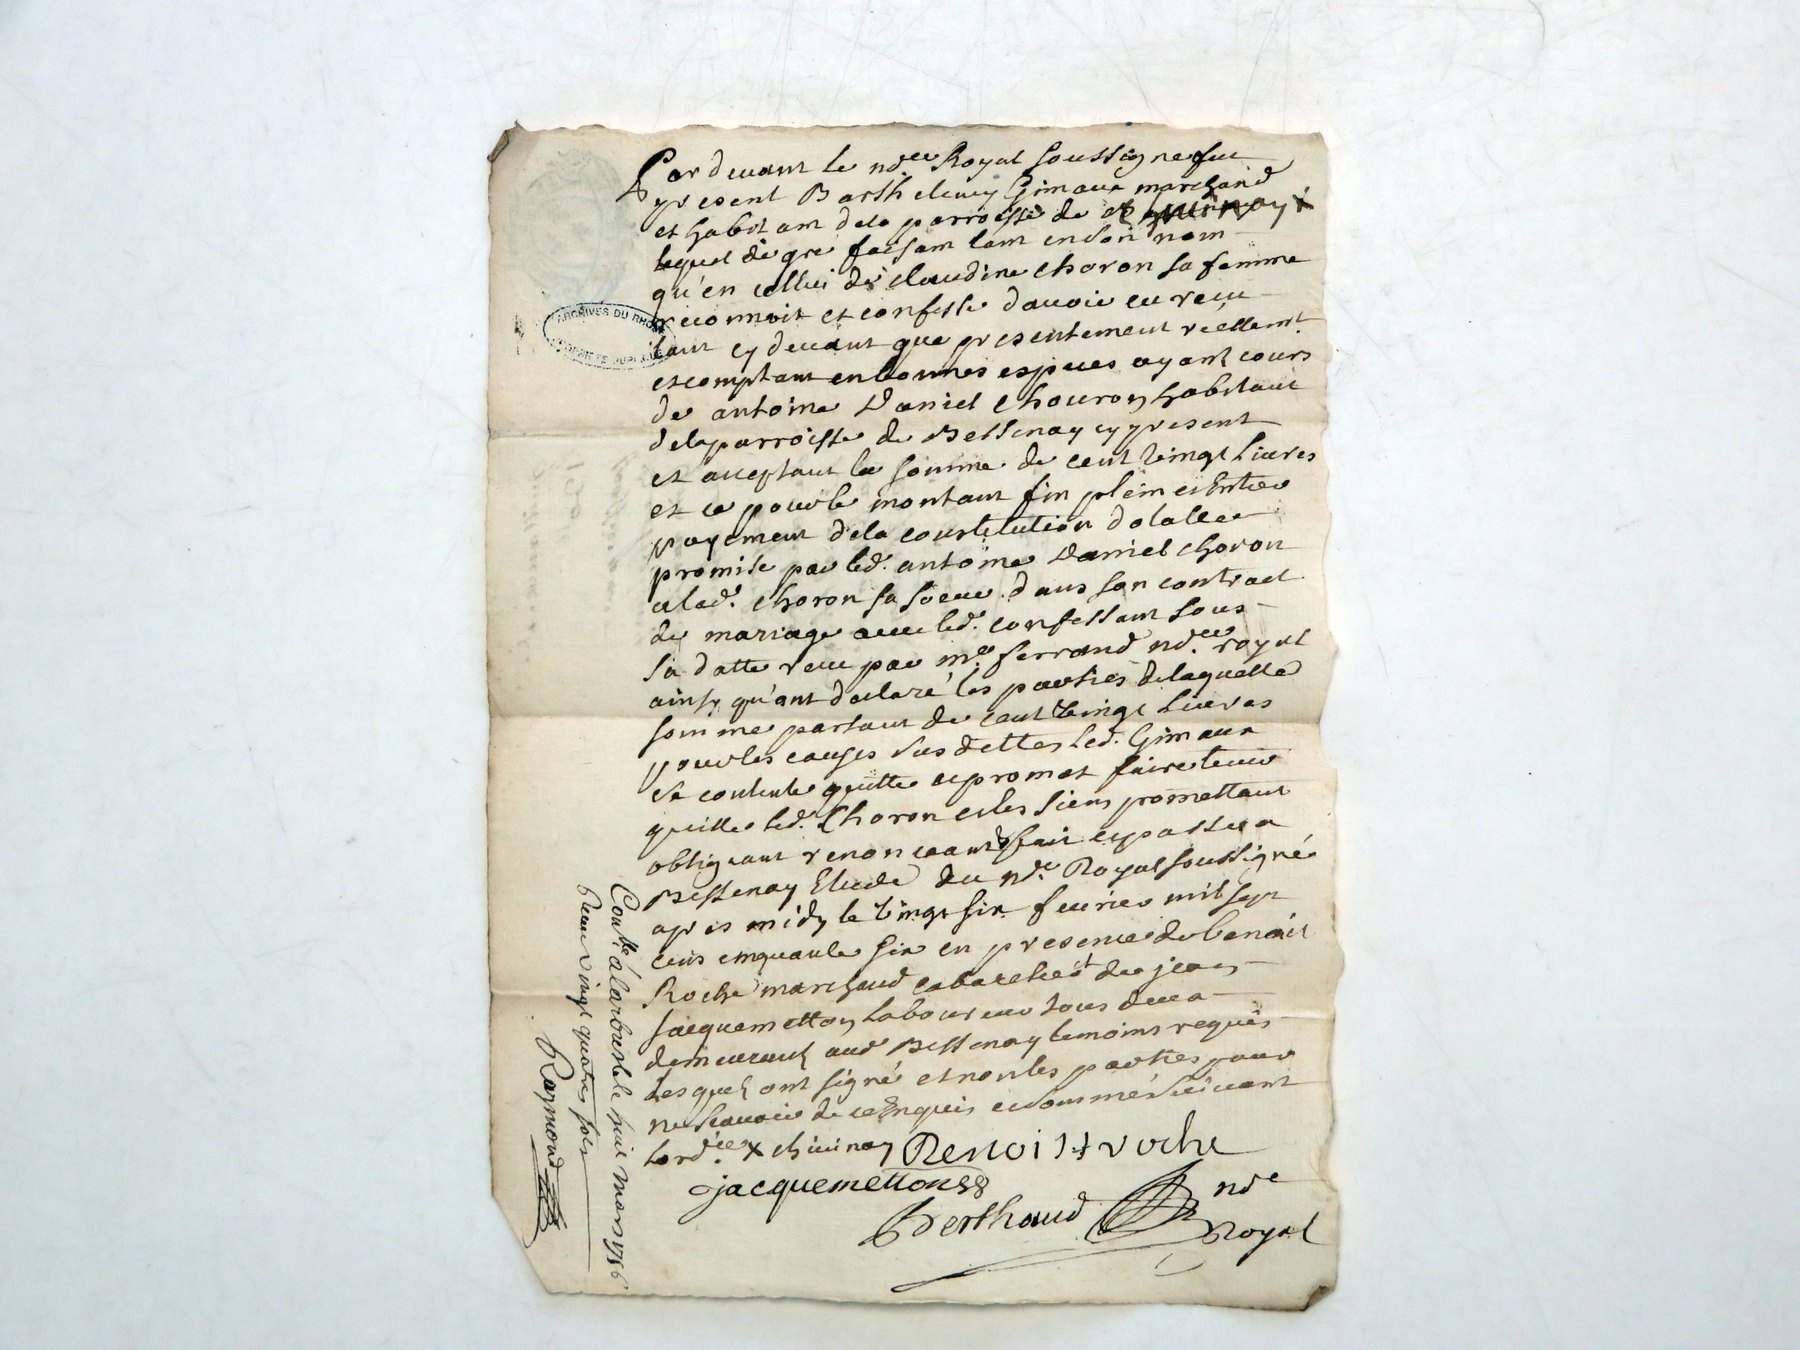 Pardevant le nore Royal soussigné fut
present Barthelemy Gimaux marchand
et habitant dela parroisse de
lequel de gré faisant tant en son nom
qu'en celluy de claudine choron sa femme
reconnoit et confesse d'avoir eu reçu
tant cy devant que presentement reellemt
et comptant en bonnes especes ayant cours
de antoine Daniel Chouron habitant
dela parroisse de Bessenay cy present
et acceptant la somme de cent vingt livres
et ce pour le montant fin plein et Entier
payement dela constitution dotalle
promise par led. antoine Daniel choron
alad. choron sa soeur dans son contract
de mariage avec led. confessant sous
sa datte reçu par me ferrand nore royal
ainsy qu'ont declaré les parties delaquelle
somme partant de cent vingt livres
pour les causes susdettes led. Gimaux
se contente quitte et promet faire tenir
quitte led. Choron et les siens promettant
obligeant renonceant fait et passé a
Bessenay Etude du nore Royal soussigné
apres midy le vingt six fevrier mil sept
cens cinquante six en presence de benoit
Roche marchand cabaretier et de jean
jacquemetton laboureur tous deux
demeurant aud Bessenay temoins requis
lesquels ont signé et non les parties pour
ne sçavoir de ce Enquis et sommé suivant
lord.ce x chevinay Benoist roche
jacquemetton
Berthaud nore
Royal
Contlé a larbresle le huit mars 1756
Reçu vingt quatre sols
Raymond
ARCHIVES DU RHONE